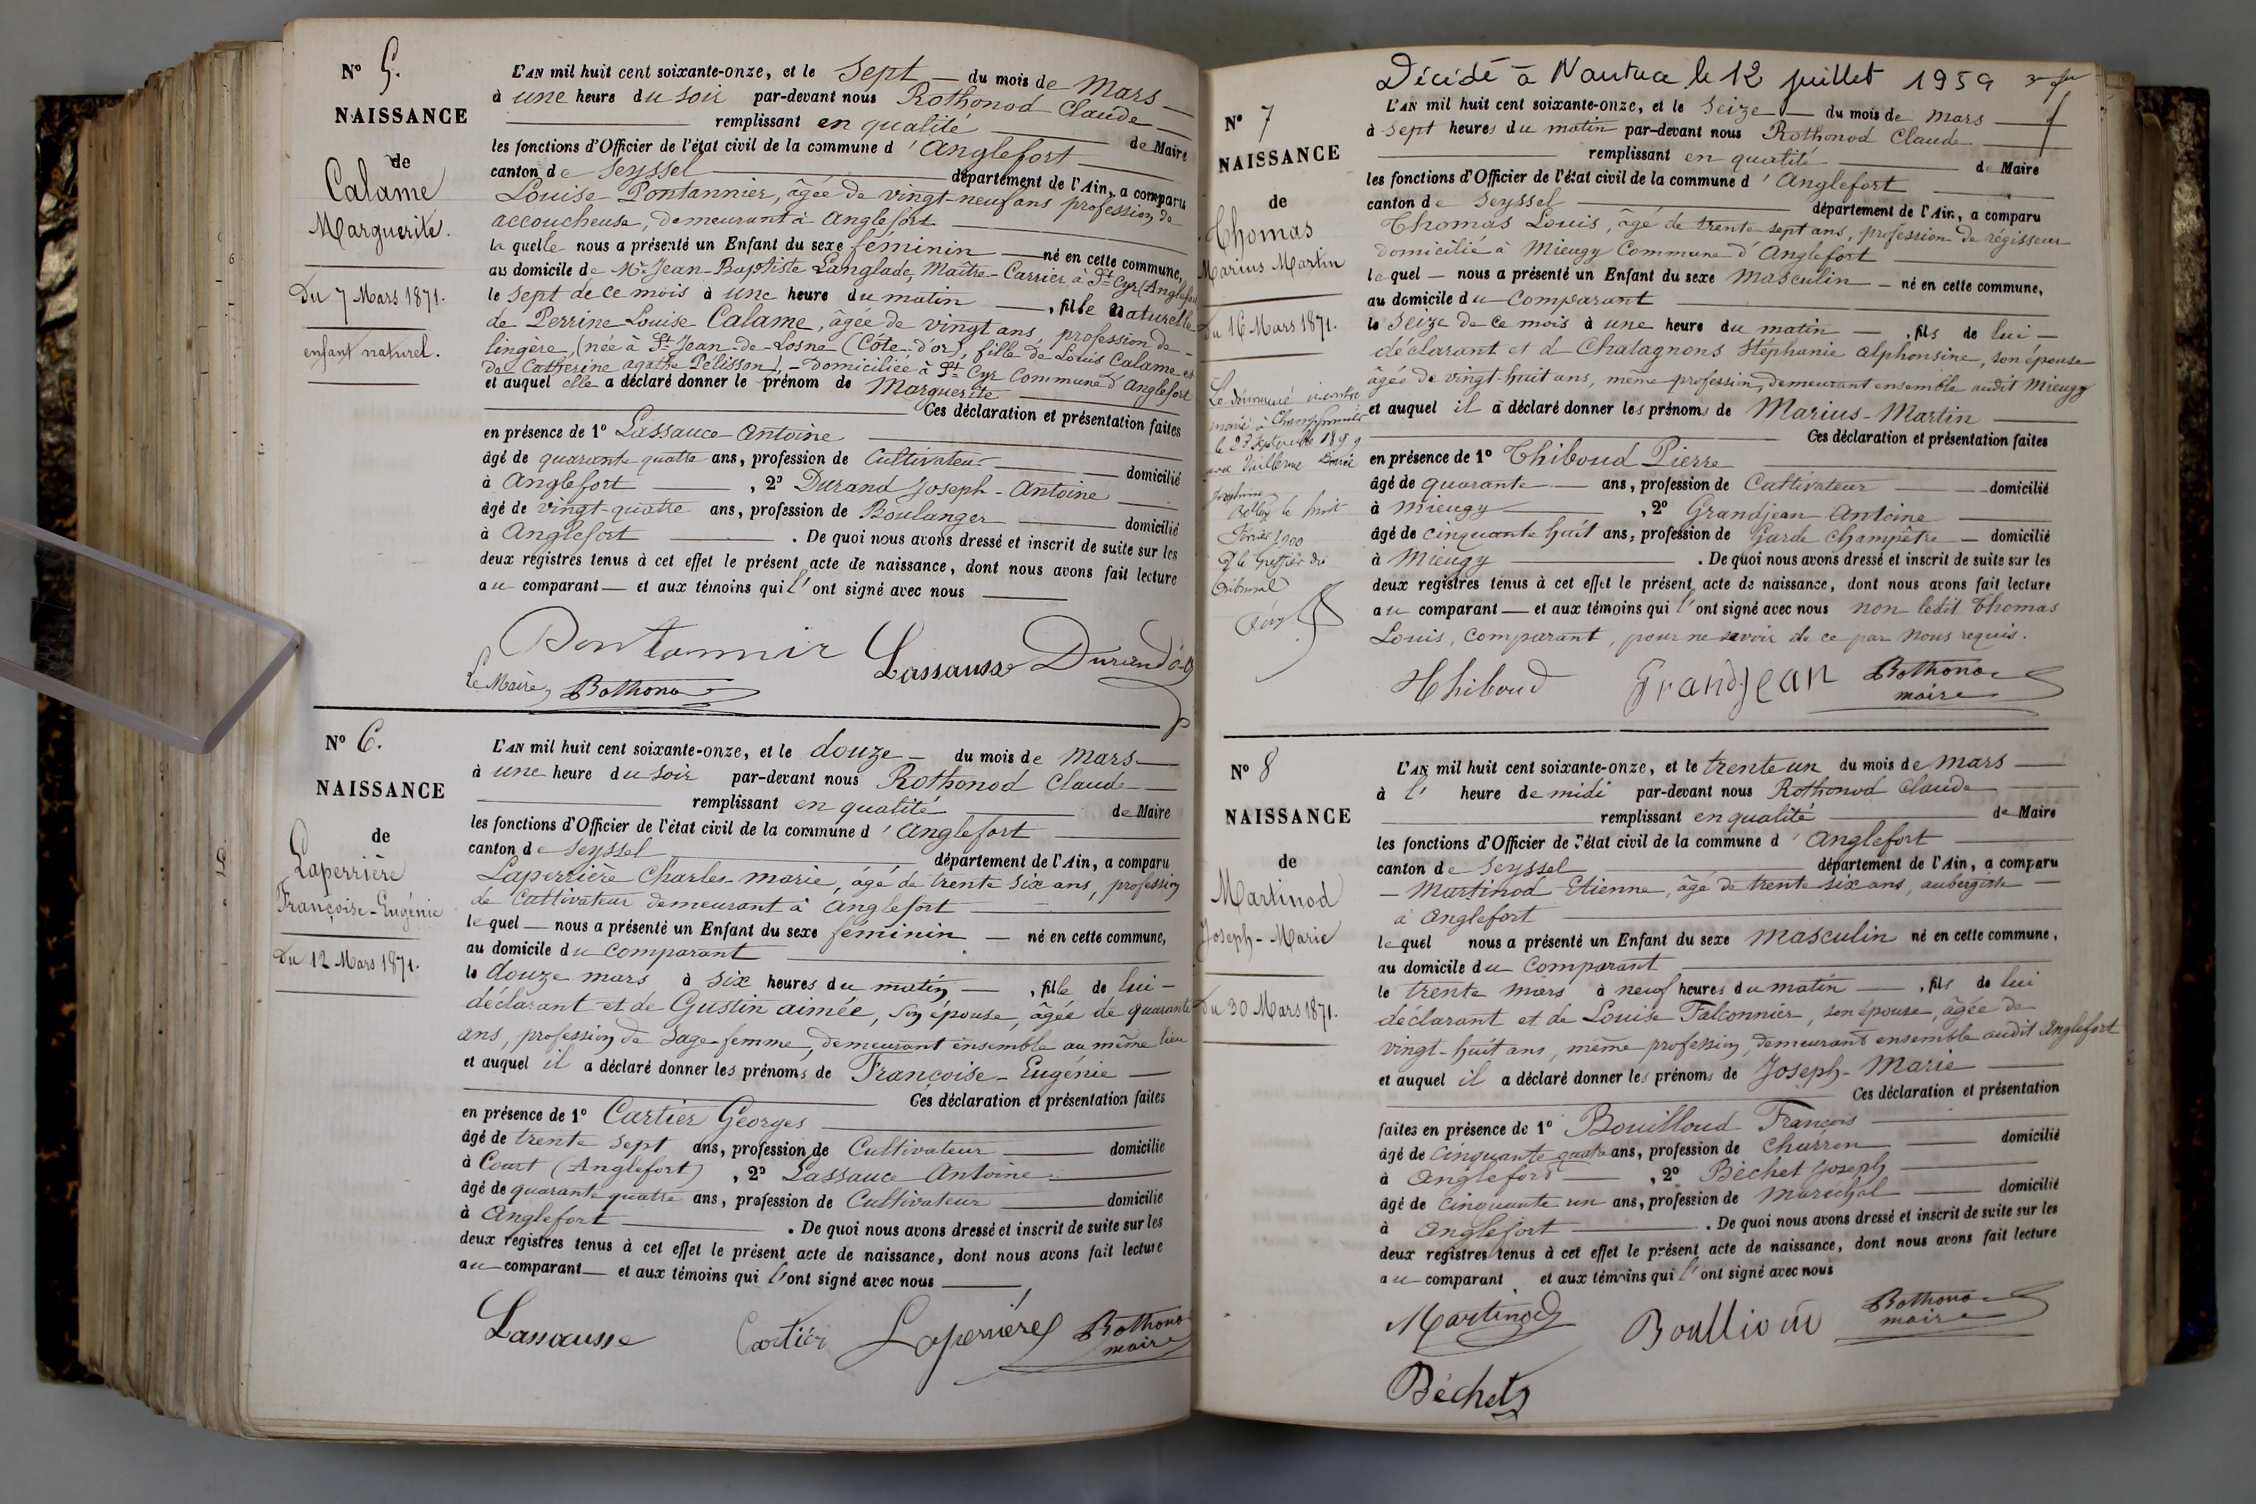 N° 5.
NAISSANCE
de
Calame
Marguerite.
Du 7 Mars 1871.
enfant naturel.
L'AN mil huit cent soixante-onze, et le Sept du mois de Mars
à une heure du soir par-devant nous Rothonod Claude
remplissant en qualité de Maire
les fonctions d'Officier de l'état civil de la commune d'Anglefort
canton de Seyssel département de l'Ain, a comparu
Louise Pontannier, âgée de vingt-neuf ans profession de
accoucheuse, demeurant à Anglefort
laquelle nous a présenté un Enfant du sexe féminin né en cette commune,
au domicile de Mr Jean-Baptiste Langlade, Maître-Carrier à St Cyr (Anglefort
le sept de ce mois à une heure du matin, fille naturelle
de Perrine Louise Calame, âgée de vingt ans, profession de
lingère, (née à St Jean-de-Losne (Côte-d'or), fille de Louis Calame et
de Catherine agathe Pélisson), - Domiciliée à St Cyr Commune d'Anglefort
et auquel elle a déclaré donner le prénom de Marguerite
Ces déclaration et présentation faites
en présence de 1° Lassauce Antoine
âgé de quarante quatre ans, profession de Cultivateur domicilié
à Anglefort, 2° Durand Joseph-Antoine
âgé de vingt-quatre ans, profession de Boulanger domicilié
à Anglefort. De quoi nous avons dressé et inscrit de suite sur les
deux registres tenus à cet effet le présent acte de naissance, dont nous avons fait lecture
au comparant et aux témoins qui l'ont signé avec nous
Pontannier Lassausse Durand
Le Maire, Rothonod
N° 6.
NAISSANCE
de
Laperrière
Françoise-Eugénie
Du 12 Mars 1871.
L'AN mil huit cent soixante-onze, et le douze du mois de Mars
à une heure du soir par-devant nous Rothonod Claude
remplissant en qualité de Maire
les fonctions d'Officier de l'état civil de la commune d'Anglefort
canton de Seyssel département de l'Ain, a comparu
Laperrière Charles-marie, âgé de trente six ans, profession
de Cultivateur demeurant à Anglefort
lequel nous a présenté un Enfant du sexe féminin né en cette commune,
au domicile du comparant
le douze mars à six heures du matin, fille de lui
déclarant et de Gustin aimée, son épouse, âgée de quarante
ans, profession de Sage-femme, demeurant ensemble au même lieu
et auquel il a déclaré donner les prénoms de Françoise-Eugénie
Ces déclaration et présentation faites
en présence de 1° Cartier Georges
âgé de trente sept ans, profession de Cultivateur domicilié
à Court (Anglefort), 2° Lassauce Antoine
âgé de quarante quatre ans, profession de Cultivateur domicilié
à Anglefort. De quoi nous avons dressé et inscrit de suite sur les
deux registres tenus à cet effet le présent acte de naissance, dont nous avons fait lecture
au comparant et aux témoins qui l'ont signé avec nous
Lassausse Cartier Laperrière Rothonod
maire
Décédé à Nantua le 12 juillet 1959
N° 7
NAISSANCE
de
Thomas
Marius Martin
Du 16 Mars 1871.
Le dénommé
marié à
le 23 septembre 1899
avec Guillerme
Joséphine
Belley le huit
Février 1900
le Greffier du
Tribunal
L'AN mil huit cent soixante-onze, et le Seize du mois de Mars
à sept heures du matin par-devant nous Rothonod Claude
remplissant en qualité de Maire
les fonctions d'Officier de l'état civil de la commune d'Anglefort
canton de Seyssel département de l'Ain, a comparu
Thomas Louis, âgé de trente sept ans, profession de régisseur
domicilié à Mieugy Commune d'Anglefort
lequel nous a présenté un Enfant du sexe Masculin né en cette commune,
au domicile du Comparant
le Seize de ce mois à une heure du matin, fils de lui
déclarant et d Chatagnons Stéphanie alphonsine, son épouse
âgée de vingt-huit ans, même profession, demeurant ensemble audit Mieugy
et auquel il a déclaré donner les prénoms de Marius-Martin
Ces déclaration et présentation faites
en présence de 1° Thiboud Pierre
âgé de quarante ans, profession de Cultivateur domicilié
à Mieugy, 2° Grandjean Antoine
âgé de cinquante huit ans, profession de Garde champêtre domicilié
à Mieugy. De quoi nous avons dressé et inscrit de suite sur les
deux registres tenus à cet effet le présent acte de naissance, dont nous avons fait lecture
au comparant et aux témoins qui l'ont signé avec nous non ledit Thomas
Louis, comparant, pour ne savoir de ce par nous requis.
Thiboud Grandjean Rothonod
maire
N° 8
NAISSANCE
de
Martinod
Joseph-Marie
Du 30 Mars 1871.
L'AN mil huit cent soixante-onze, et le trente un du mois de Mars
à l'heure de midi par-devant nous Rothonod Claude
remplissant en qualité de Maire
les fonctions d'Officier de l'état civil de la commune d'Anglefort
canton de Seyssel département de l'Ain, a comparu
Martinod Etienne, âgé de trente six ans, aubergiste
à Anglefort
lequel nous a présenté un Enfant du sexe Masculin né en cette commune,
au domicile du Comparant
le trente mars à neuf heures du matin, fils de lui
déclarant et de Louise Falconnier, son épouse, âgée de
vingt-huit ans, même profession, demeurant ensemble audit Anglefort
et auquel il a déclaré donner les prénoms de Joseph-Marie
Ces déclaration et présentation
faites en présence de 1° Bouilloud François
âgé de cinquante quatre ans, profession de Charron domicilié
à Anglefort, 2° Béchet Joseph
âgé de cinquante un ans, profession de Maréchal domicilié
à Anglefort. De quoi nous avons dressé et inscrit de suite sur les
deux registres tenus à cet effet le présent acte de naissance, dont nous avons fait lecture
au comparant et aux témoins qui l'ont signé avec nous
Martinod Boullioud Rothonod
maire
Béchet